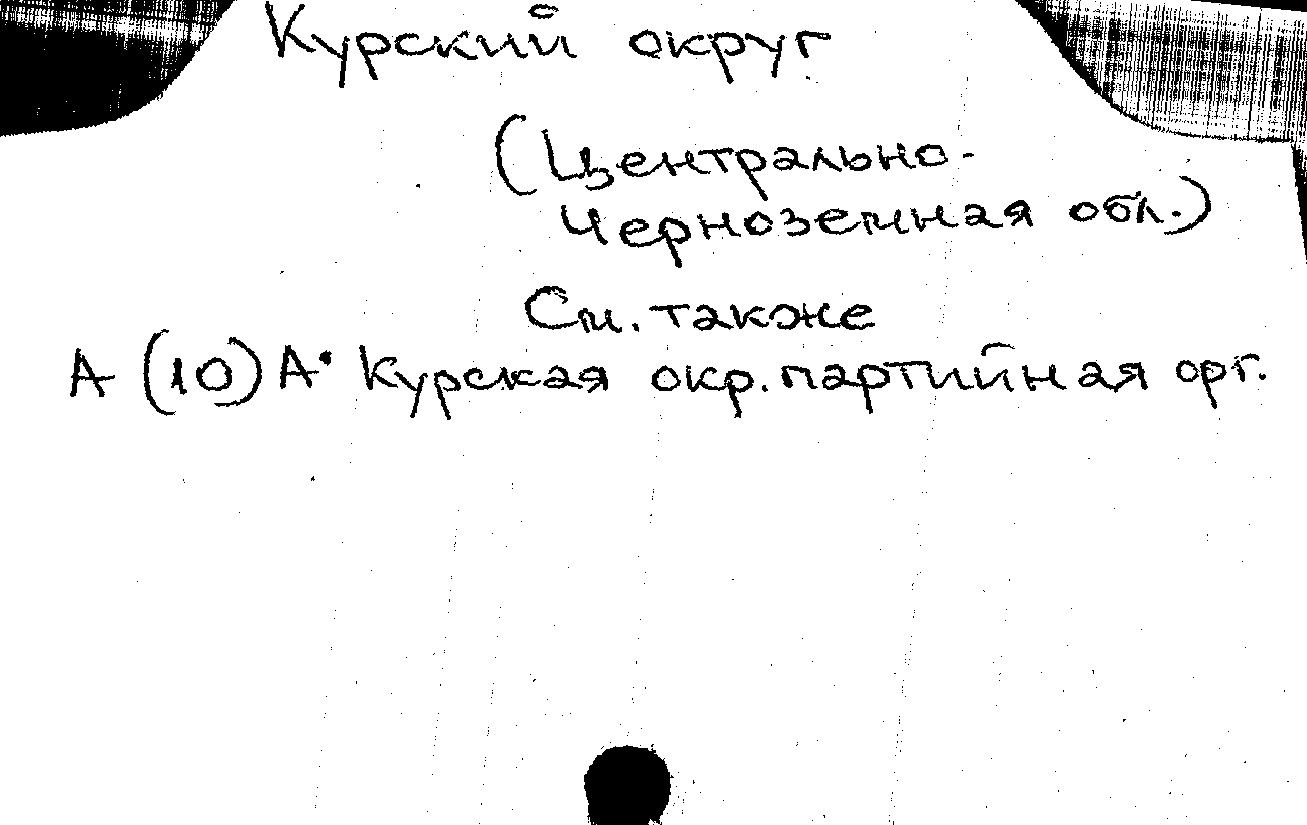 Курский округ
(Центрально-
Черноземная обл.)
См. также
А (10) А• Курская окр. партийная орг.